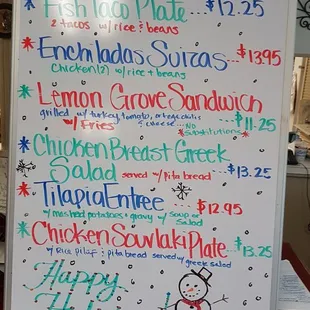 Fish Taco Plate ... $12.25
2 tacos w/ rice & beans
* Enchiladas Suizas ...$13.95
Chicken (2) w/ rice + beans
* Lemon Grove Sandwich
grilled w/ turkey, tomato, ortega chilis
& cheese ... NO ...$11.25
w/ Fries *substitutions*
* Chicken Breast Greek
Salad served w/ pita bread ...$13.25
* Tilapia Entree ...$12.95
w/ mashed potatoes + gravy w/ soup or
salad
* Chicken Souvlaki Plate ...$13.25
w/ Rice pilaf & pita bread served w/ greek salad
Happy